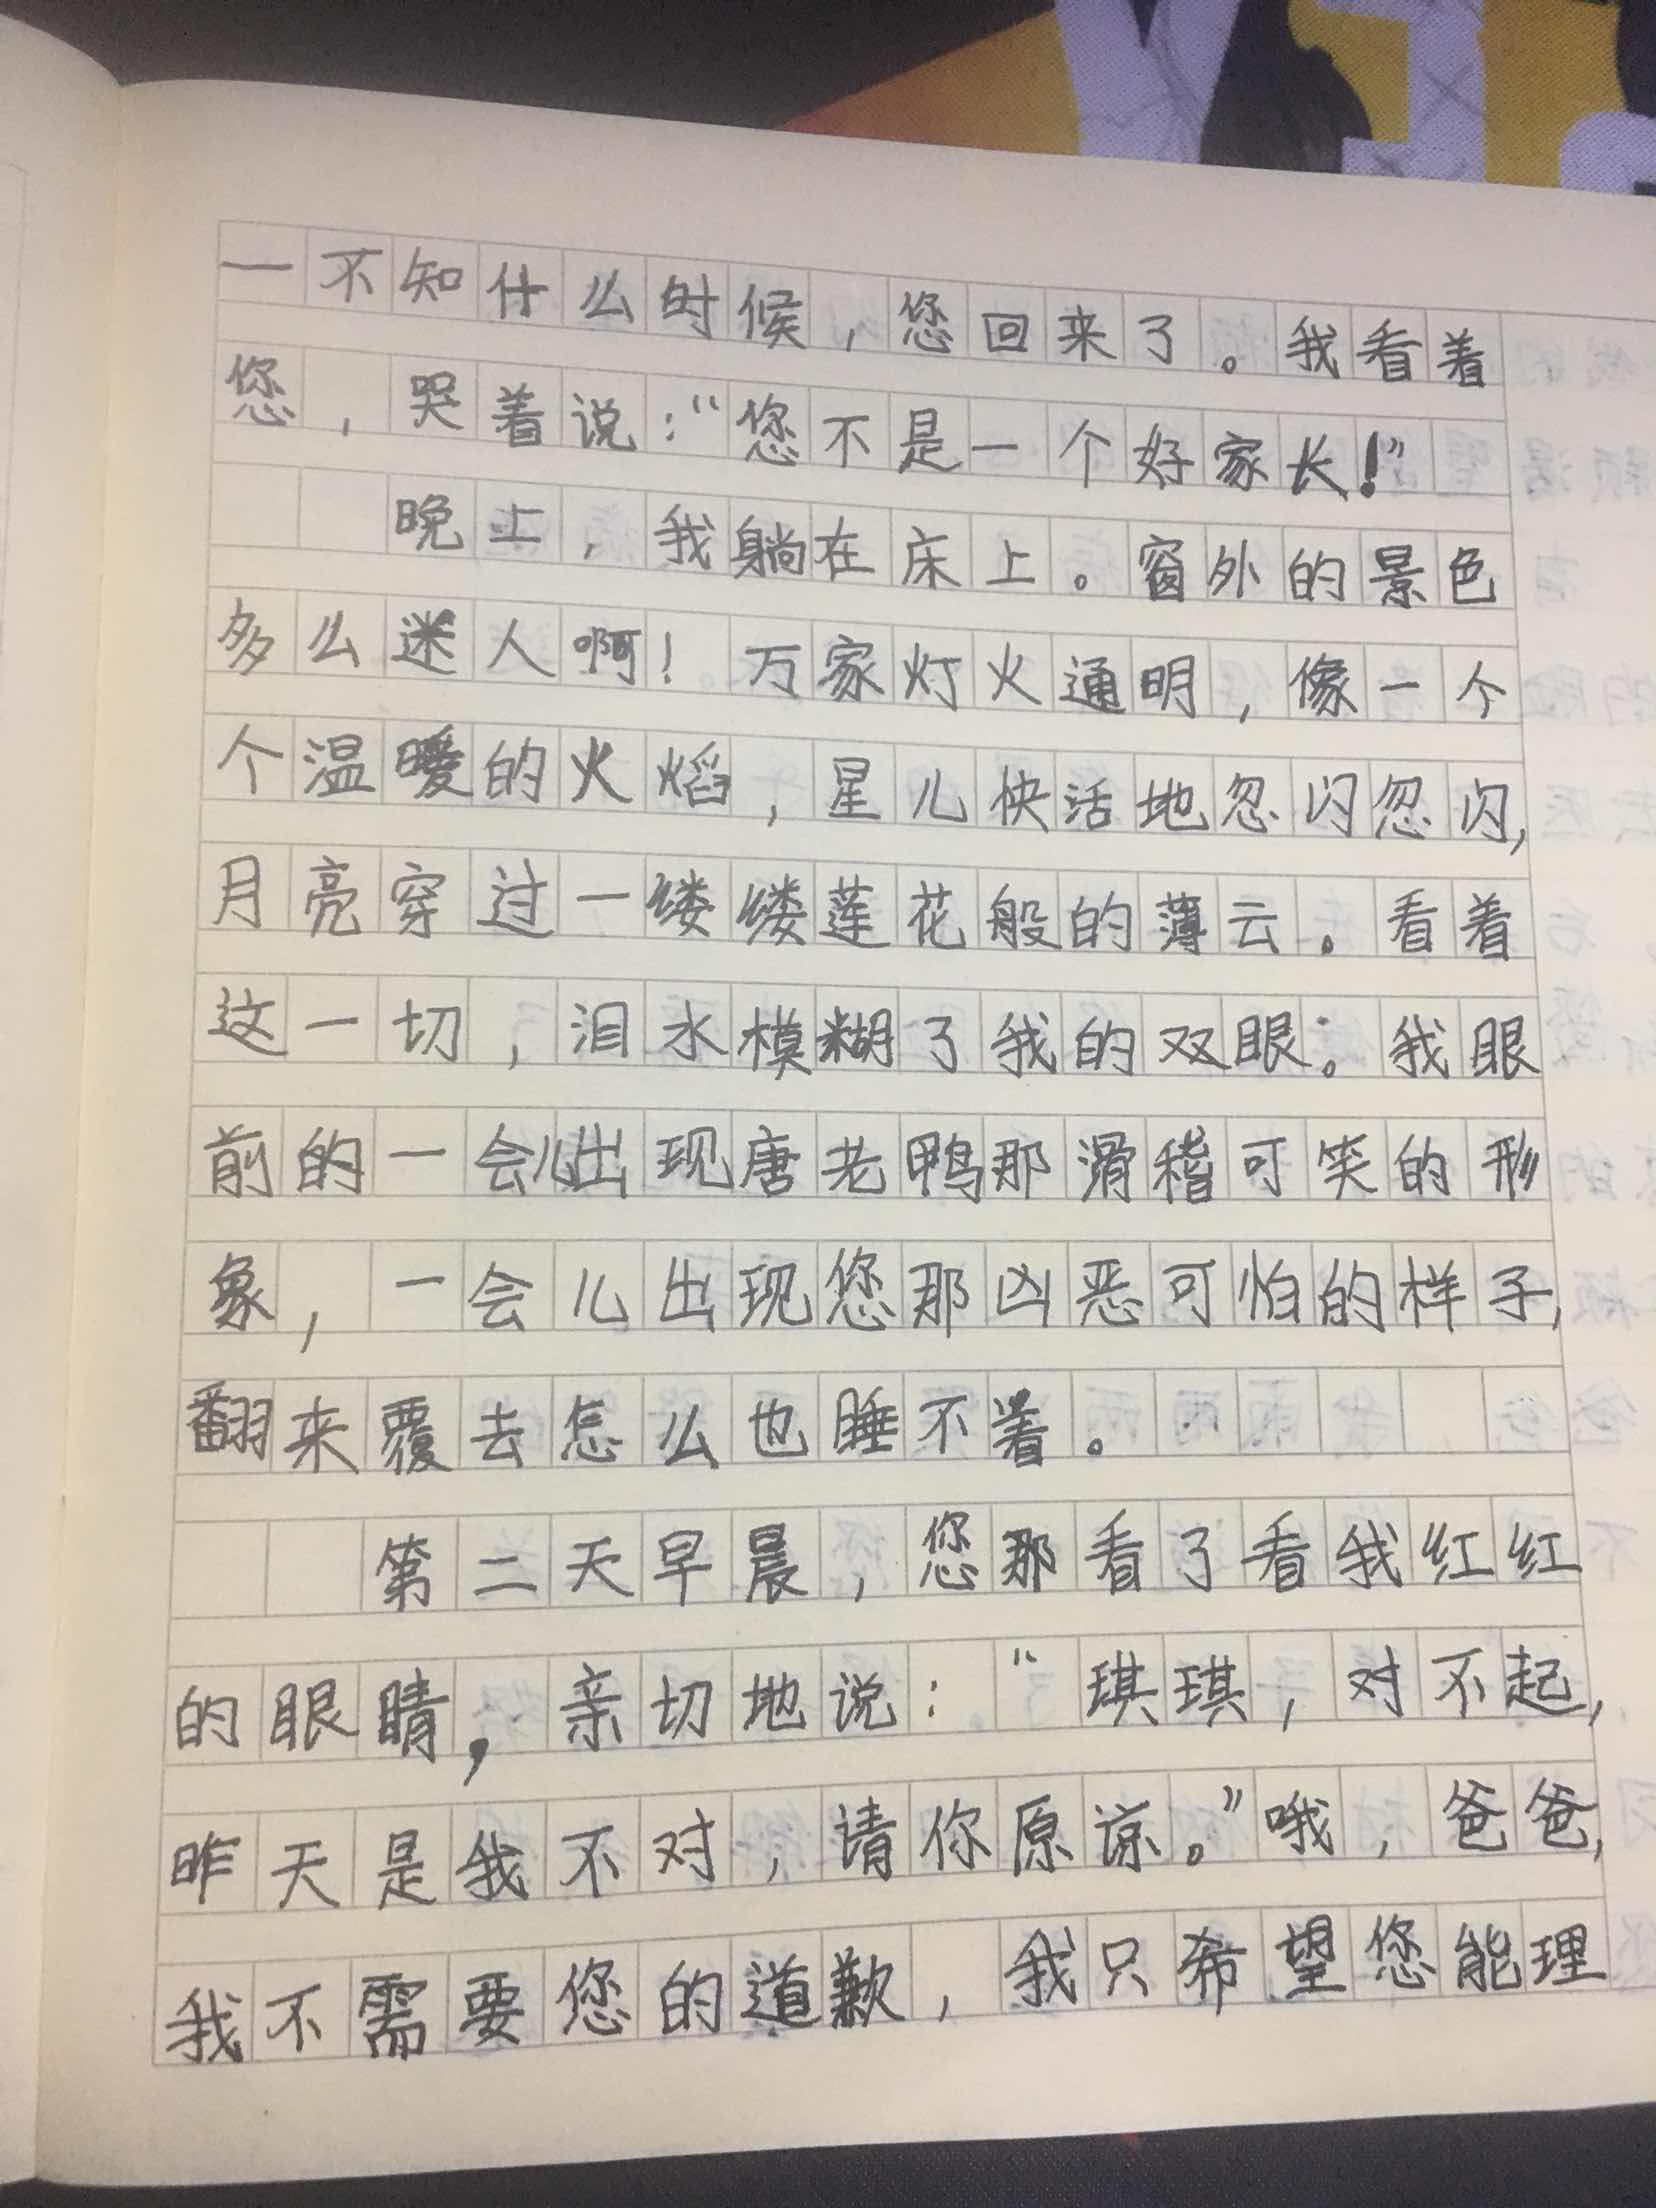 一不知什么时候，您回来了。我看着
您，哭着说：“您不是一个好家长！”
晚上，我躺在床上。窗外的景色
多么迷人啊！万家灯火通明，像一个
个温暖的火焰，星儿快活地忽闪忽闪，
月亮穿过一缕缕莲花般的薄云。看着
这一切，泪水模糊了我的双眼。我眼
前的一会儿出现唐老鸭那滑稽可笑的形
象，一会儿出现您那凶恶可怕的样子，
翻来覆去怎么也睡不着。
第二天早晨，您那看了看我红红
的眼睛，亲切地说：“琪琪，对不起，
昨天是我不对，请你原谅。”哦，爸爸，
我不需要您的道歉，我只希望您能理